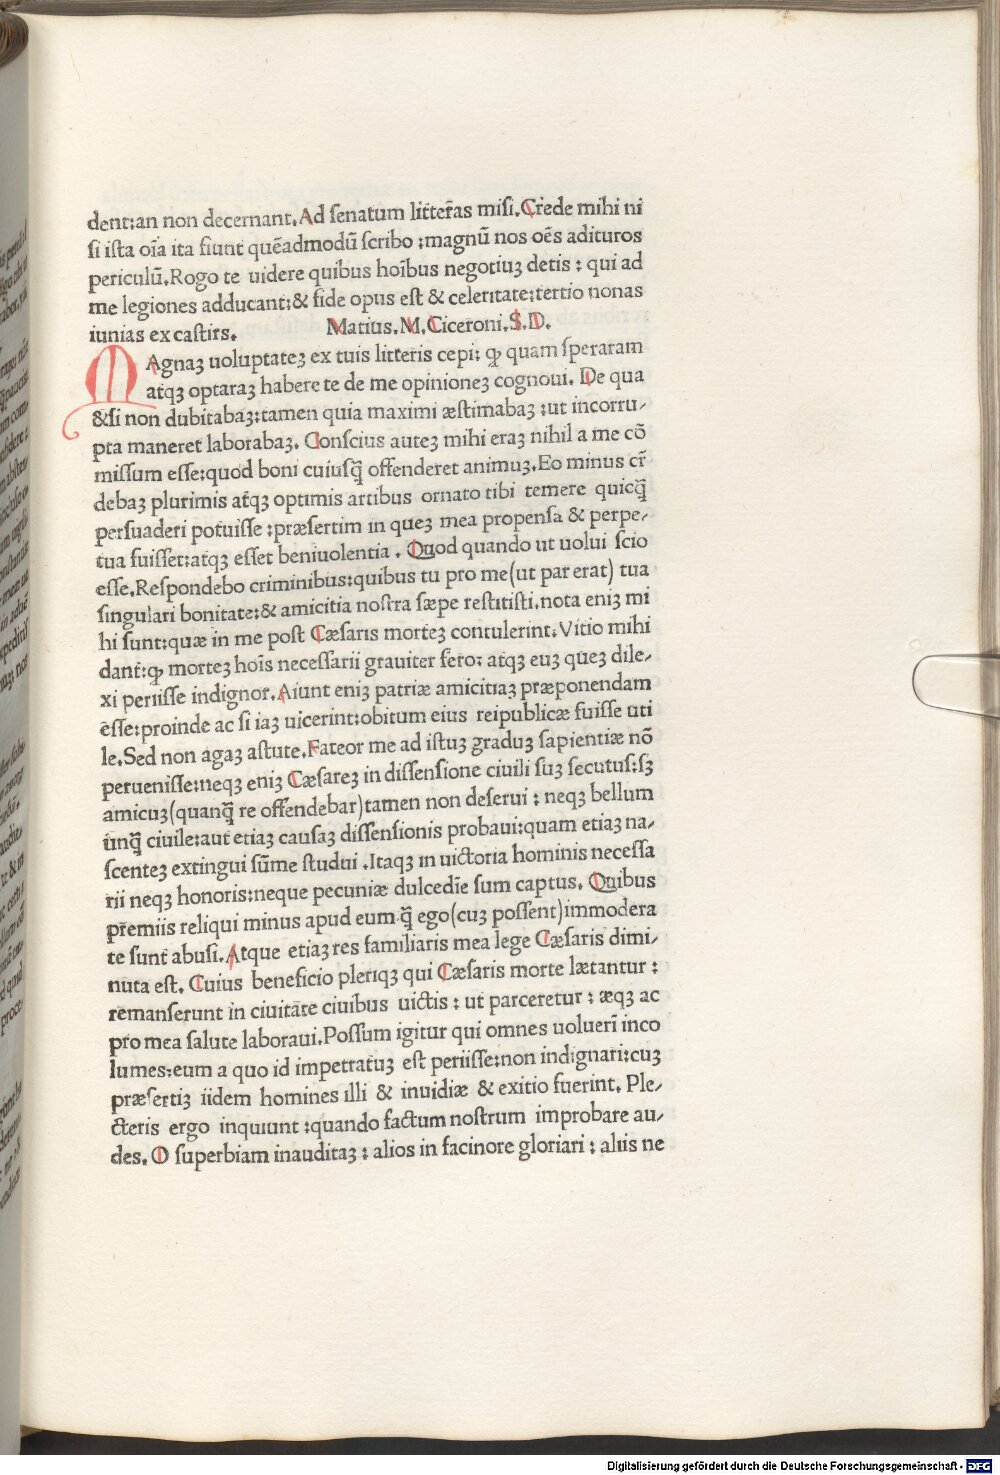 dent:an non decernant.Ad senatum litter̃as misi.Crede mihi ni
si ista oĩa ita fiunt quẽadmodũ scribo :magnũ nos oẽs adituros
periculũ.Rogo te uidere quibus hoĩbus negotiuꝫ detis : qui ad
me legiones adducant:& fide opus est & celeritate:tertio nonas
iunias ex castirs.
Matius.M.Ciceroni.S.D.
MAgnaꝫ uoluptateꝫ ex tuis litteris cepi: ꝙ quam speraram
atqꝫ optaraꝫ habere te de me opinioneꝫ cognoui. De qua
&si non dubitabaꝫ:tamen quia maximi æstimabaꝫ :ut incorru/
pta maneret laborabaꝫ. Conscius auteꝫ mihi eraꝫ nihil a me cõ
missum esse:quod boni cuiusq̃ offenderet animuꝫ.Eo minus cr̃
debaꝫ plurimis atqꝫ optimis artibus ornato tibi temere quicq̃
persuaderi potuisse :præsertim in queꝫ mea propensa & perpe/
tua fuisset:atqꝫ esset beniuolentia . Quod quando ut uolui scio
esse.Respondebo criminibus:quibus tu pro me(ut par erat) tua
singulari bonitate:& amicitia nostra sæpe restitisti.nota eniꝫ mi
hi sunt:quæ in me post Cæsaris morteꝫ contulerint.Vitio mihi
dant:ꝙ morteꝫ hoĩs necessarii grauiter fero: atqꝫ euꝫ queꝫ dile/
xi periisse indignor.Aiunt eniꝫ patriæ amicitiaꝫ præponendam
esse:proinde ac si iaꝫ uicerint:obitum eius reipublicæ fuisse uti
le.Sed non agaꝫ astute.Fateor me ad istuꝫ graduꝫ sapientiæ nõ
peruenisse:neqꝫ eniꝫ Cæsareꝫ in dissensione ciuili suꝫ secutus:sꝫ
amicuꝫ(quanq̃ re offendebar)tamen non deserui : neqꝫ bellum
unq̃ ciuile:aut etiaꝫ causaꝫ dissensionis probaui:quam etiaꝫ na/
scenteꝫ extingui sũme studui .Itaqꝫ in uictoria hominis necessa
rii neqꝫ honoris:neque pecuniæ dulcedie sum captus. Quibus
pr̃emiis reliqui minus apud eum q̃ ego(cuꝫ possent)immodera
te sunt abusi.Atque etiaꝫ res familiaris mea lege Cæsaris dimi/
nuta est. Cuius beneficio pleriqꝫ qui Cæsaris morte lætantur :
remanserunt in ciuitate ciuibus uictis : ut parceretur : æqꝫ ac
pro mea salute laboraui.Possum igitur qui omnes uoluerĩ inco
lumes:eum a quo id impetratuꝫ est periisse:non indignari:cuꝫ
præsertiꝫ iidem homines illi & inuidiæ & exitio fuerint. Ple/
cteris ergo inquiunt :quando factum nostrum improbare au/
des. O superbiam inauditaꝫ : alios in facinore gloriari : aliis ne
Digitalisierung gefördert durch die Deutsche Forschungsgemeinschaft - DFG